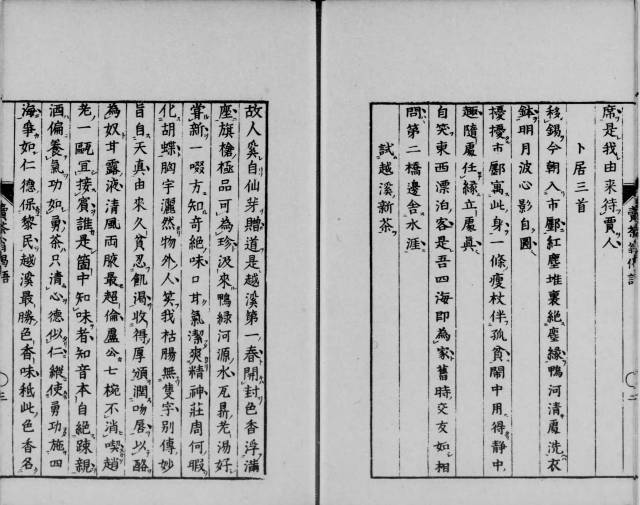 席是我由來待賈人
卜居三首
移錫今朝入市鄽紅塵堆裏絶塵緣鴨河清處洗衣
鉢明月波心影自圓
擾擾市鄽寓此身一條瘦杖伴孤貧鬧中用得靜中
趣隨處任緣立處眞
自笑東西漂泊客是吾四海即為家舊時交友如相
問第二橋邊舎水涯
試越溪新茶
故人奚自仙芽贈道是越溪第一春開封色香浮滿
座旗槍極品可為珍汲來鴨緑河源水瓦鼎先湯好
嘗新一啜方知奇絶味口甘氣潔爽精神莊周何暇
化胡蝶胸宇灑然物外人笑我枯腸無隻字別傳妙
旨自天真由來久貧忍飢渇收得厚頒潤吻唇以酪
為奴甘露液清風兩腋最超倫盧公七椀不消喫趙
老一甌宜接賓誰是箇中知味者知音本自絶踈親
酒偏養氣功如勇茶只清心德似仁縱使勇功施四
海爭如仁德保黎民越溪最勝色香味秪此色香名
賣茶翁偈語
三
二